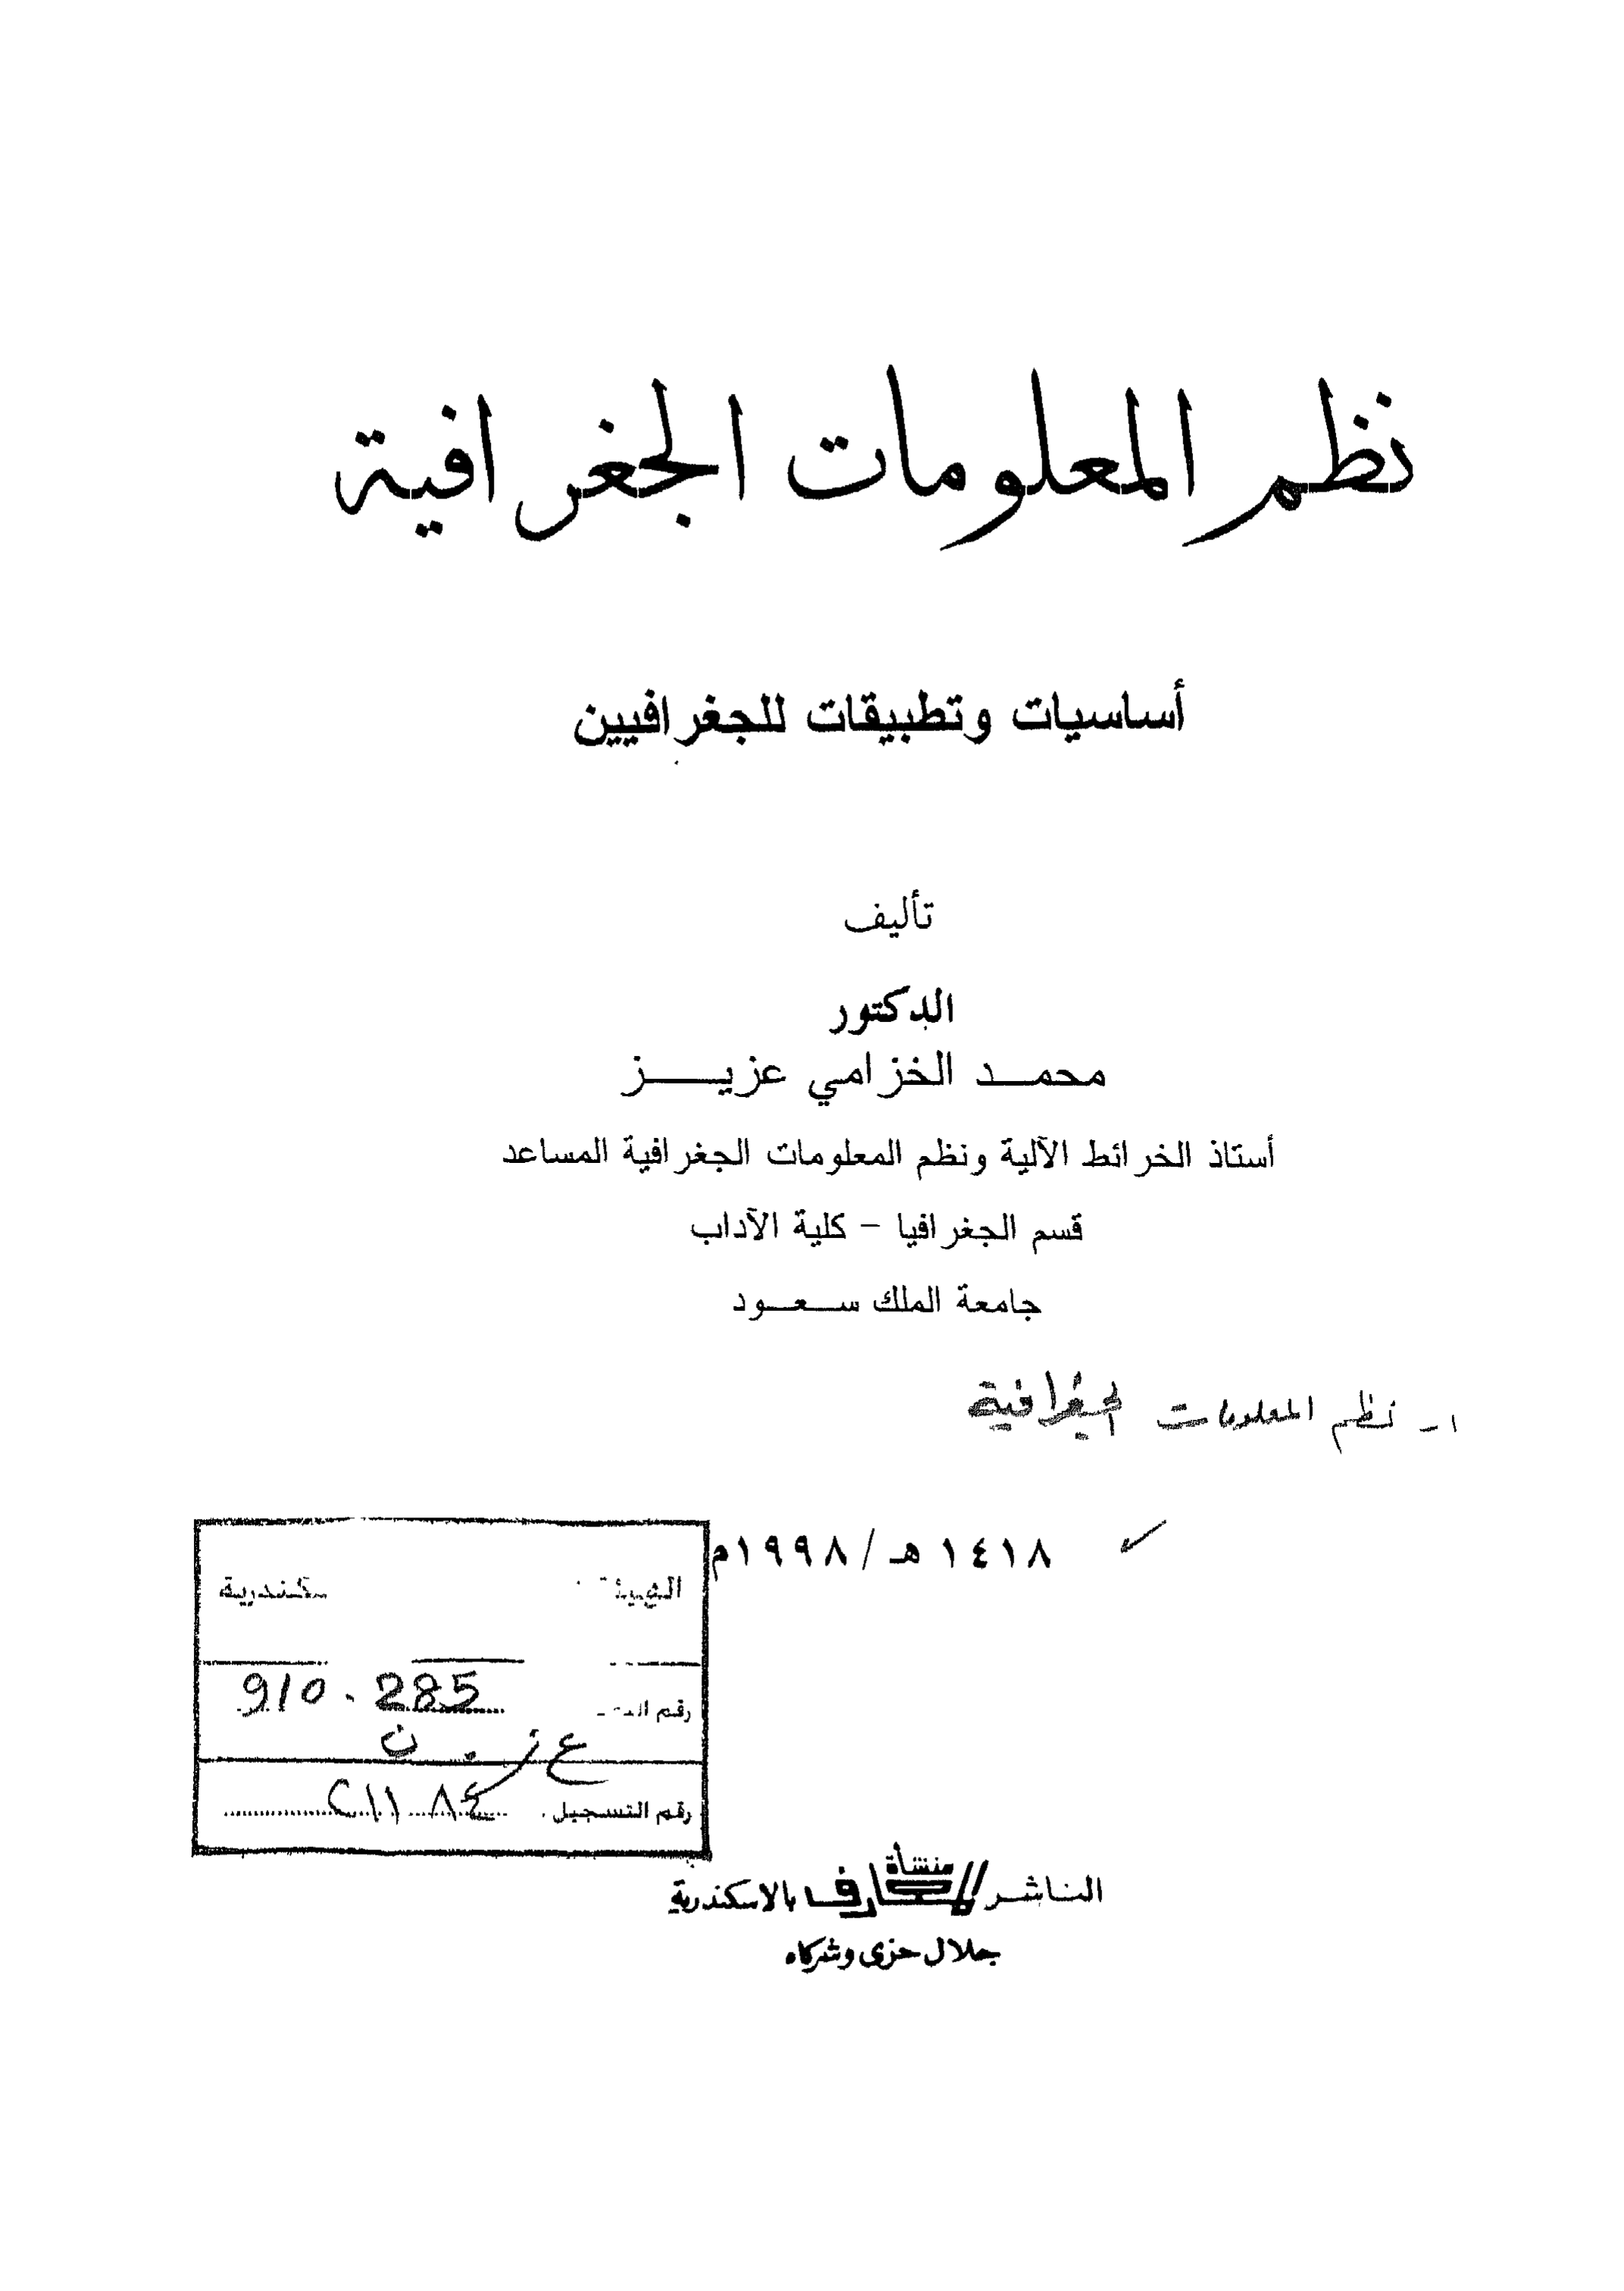 نظم المعلومات الجغرافية
أساسيات وتطبيقات للجغرافيين
تأليف
الدكتور
محمد الخزامي عزيز
أستاذ الخرائط الآلية ونظم المعلومات الجغرافية المساعد
قسم الجغرافيا – كلية الآداب
جامعة الملك سعود
١- نظم المعلومات الجغرافية
١٤١٨ هـ / ١٩٩٨م
910.285
رقم
عز . ن
رقم التسجيل ٢١١٨٤
الناشر منشأة المعارف بالاسكندرية
جلال حزى وشركاه